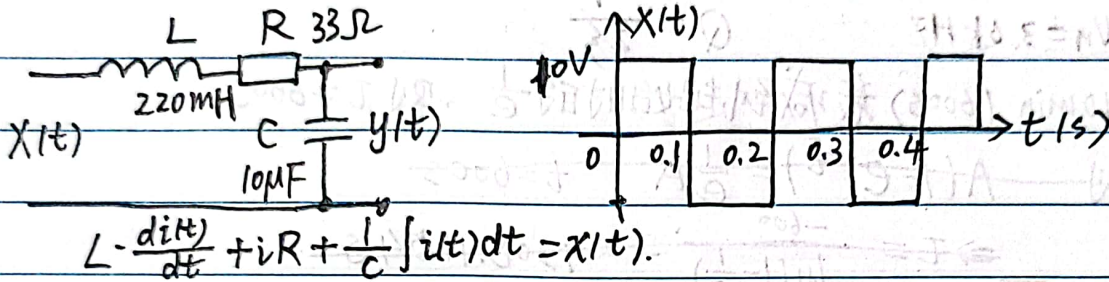 L R 33Ω
220mH
x(t) C y(t)
10μF
x(t)
10V
0 0.1 0.2 0.3 0.4 t(s)
L·di(t)/dt + iR + 1/C ∫i(t)dt = x(t).